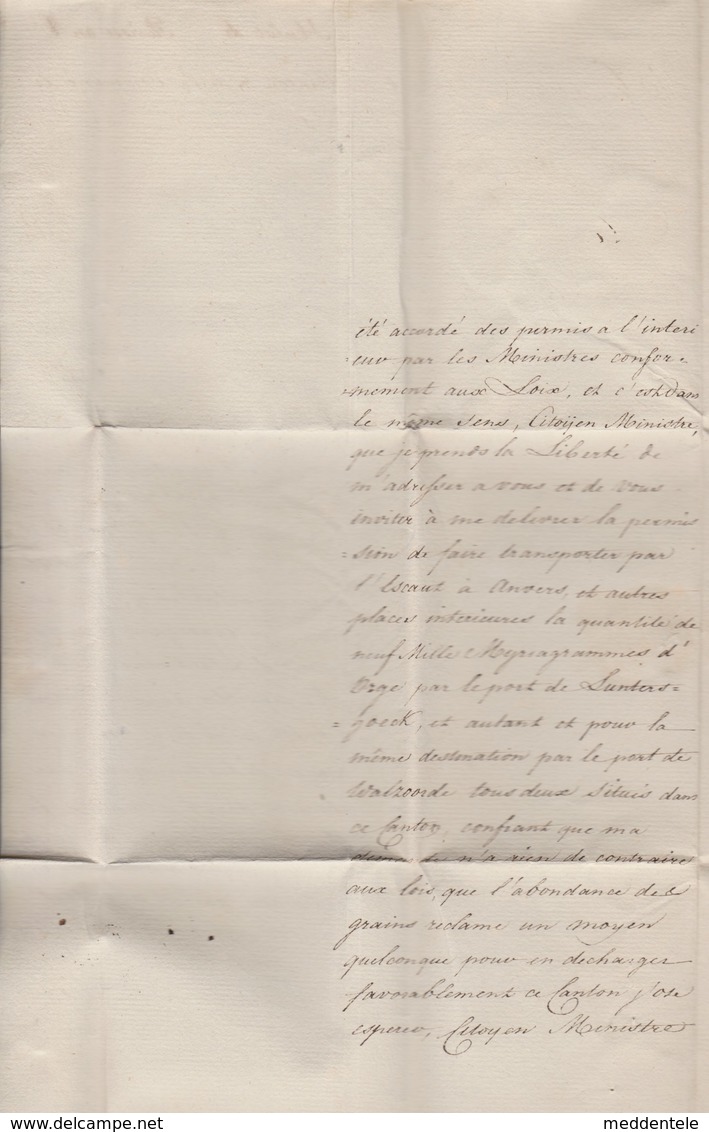 été accordé des permis a l'interi
=eur par les Ministres confor=
=mement aux Loix, et c'est dans
le même sens, Citoÿen Ministre,
que je prends la Liberté de
m'adresser a vous et de vous
inviter à me delivrer la permis
=sion de faire transporter par
l'Escaut à Anvers, et autres
places interieures la quantité de
neuf Mille Myriagrammes d'
Orge par le port de Lunters=
=hoeck, et autant et pour la
même destination par le port de
Walzoorde tous deux situés dans
ce Canton, confiant que ma
demande n'a rien de contraire
aux lois, que l'abondance des
grains reclame un moyen
quelconque pour en decharger
favorablement ce Canton j'ose
esperer, Citoyen Ministre
meddentele